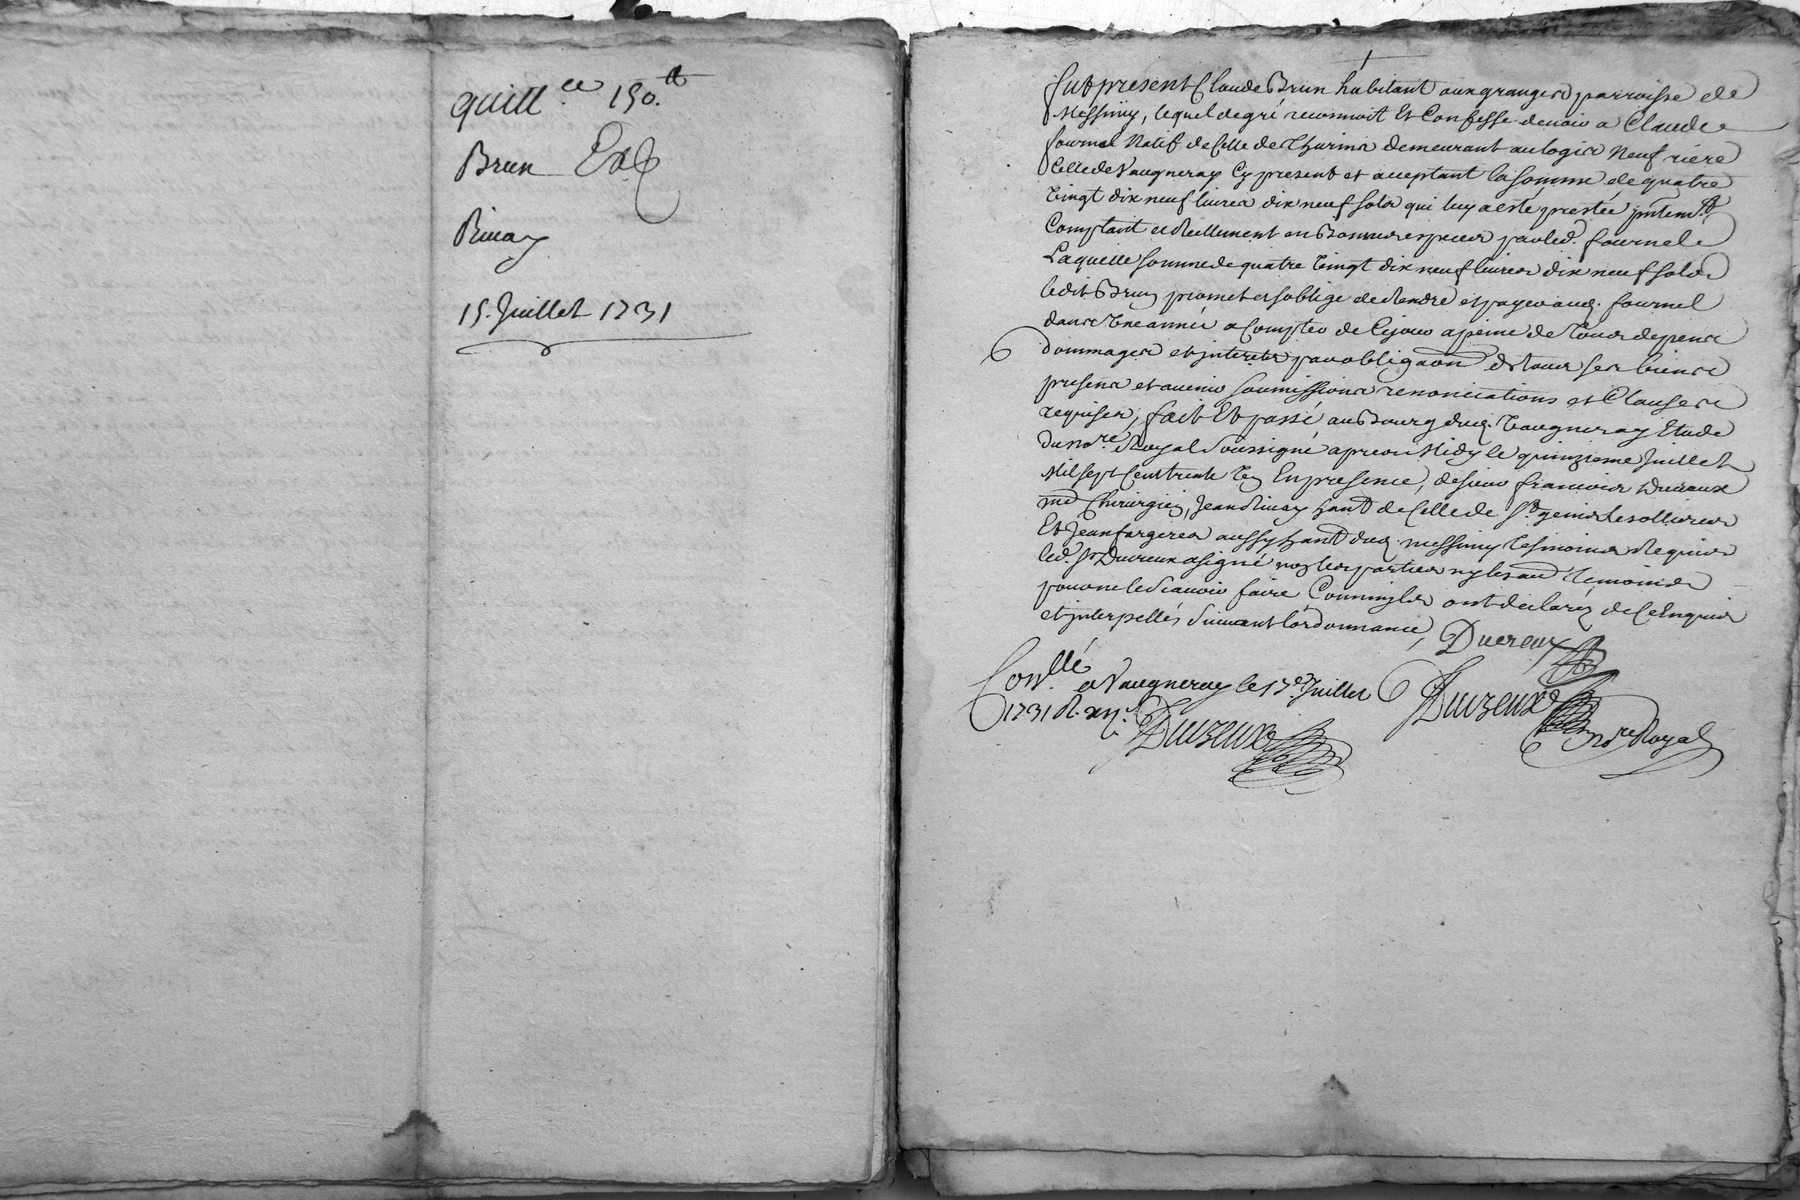 quitt.ce 150.tt
Brun Exp
Rivay
15. Juillet 1731
fut present Claude Brun habitant aux granges parroisse de
Messimy, lequel de gré reconnoit Et Confesse devoir a Claude
fournel Natif de Celle de Thurins demeurant au logis Neuf riere
Celle de Vaugneray Cy present et acceptant la somme de quatre
vingt dix neuf livres dix neuf sols qui luy a esté prestée pntemt
Comptant et Reellement en Bonnes especes par led. fournel
Laquelle somme de quatre vingt dix neuf livres dix neuf sols
ledit Brun promet et soblige de Rendre et payer aud. fournel
dans Une année a Compter de Cejour a peine de tous depens
dommages et interets par obligaon de tous ses biens
presens et avenir soumissions renonciations et Clauses
requises, fait Et passé au Bourg dud. Vaugneray Etude
du nore. Royal Soussigné apres Midy le quinzieme Juillet
Mil sept Cent trente Un En presence, de sieur francois Ducreux
md Chirurgien, Jean Rivay hant de Celle de St. genis les ollieres
Et Jean fargeres aussy hant dud. messimy tesmoins Requis
led. sr Ducreux a signé non les parties ny les au temoins
pour ne le scavoir faire Comme ils ont declaréz de Ce Enquis
et interpellés Suivant lordonnance, Ducreux
Conllé. a Vaugneray le 17e. Juillet
1731 R. xij s. Ducreux
Ducreux nore Royal